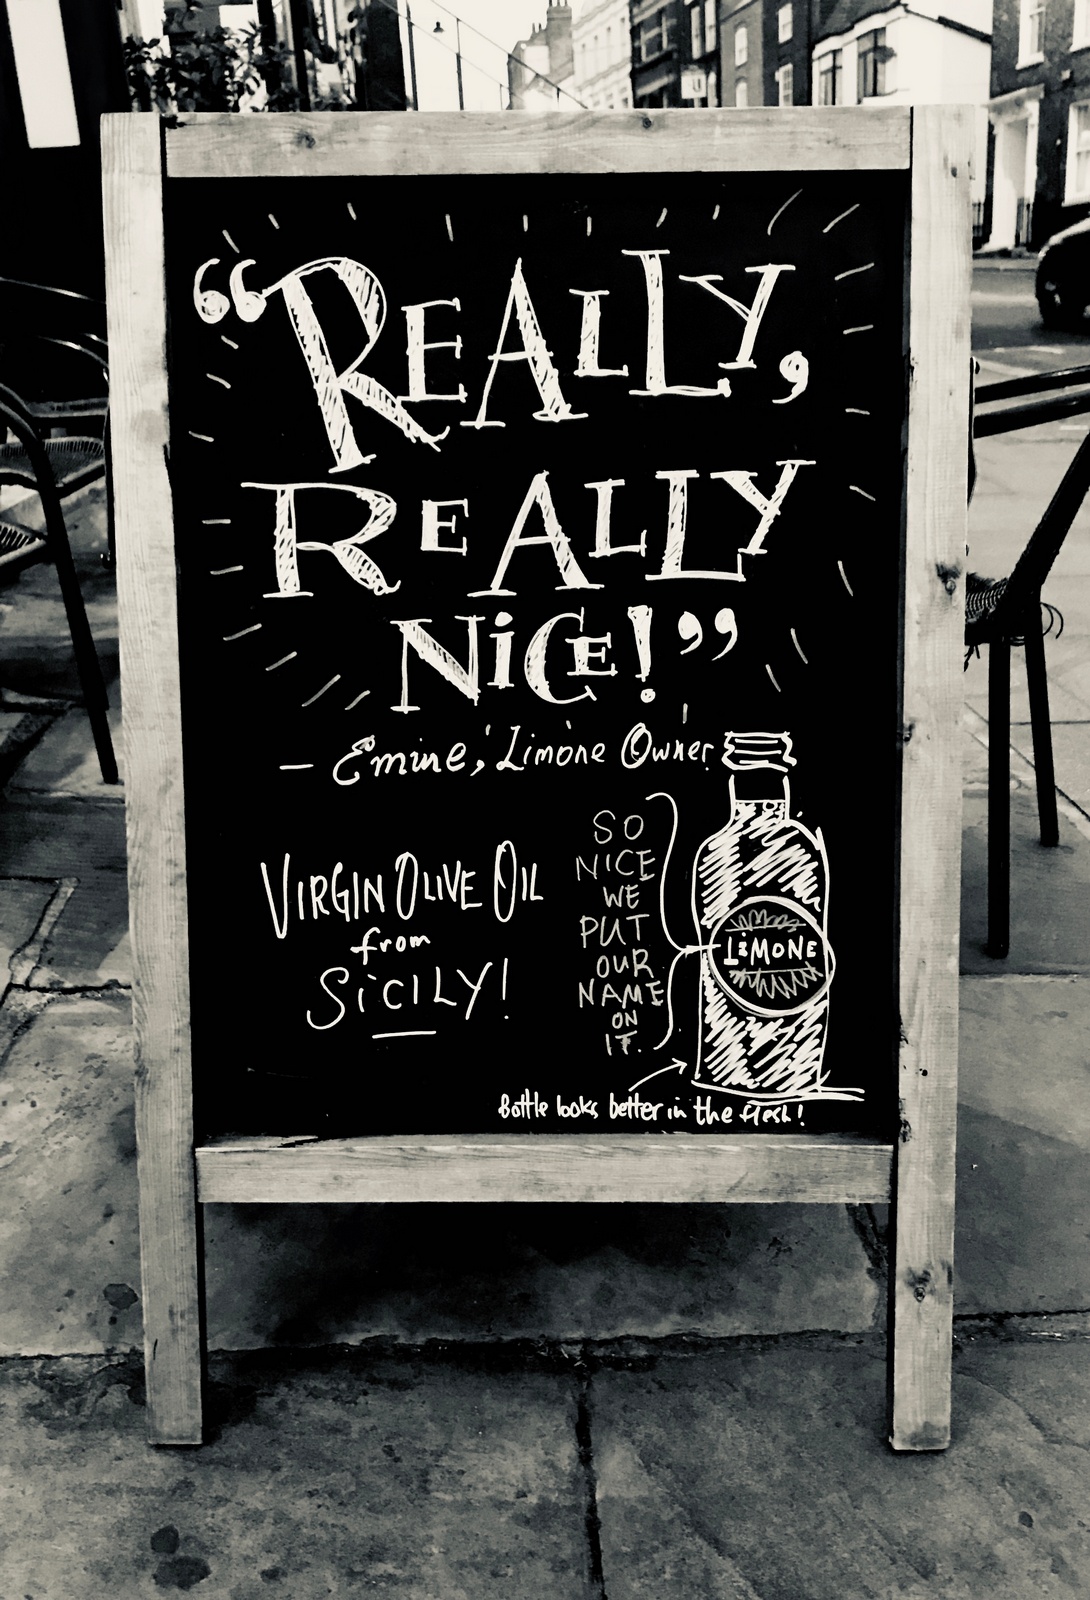 “REALLY,
REALLY
NiCE!”
– Emine, Limone Owner
VIRGIN OLIVE OIL
from
SiCILY!
SO
NICE
WE
PUT
OUR
NAME
ON
IT.
LiMONE
Bottle looks better in the flesh!